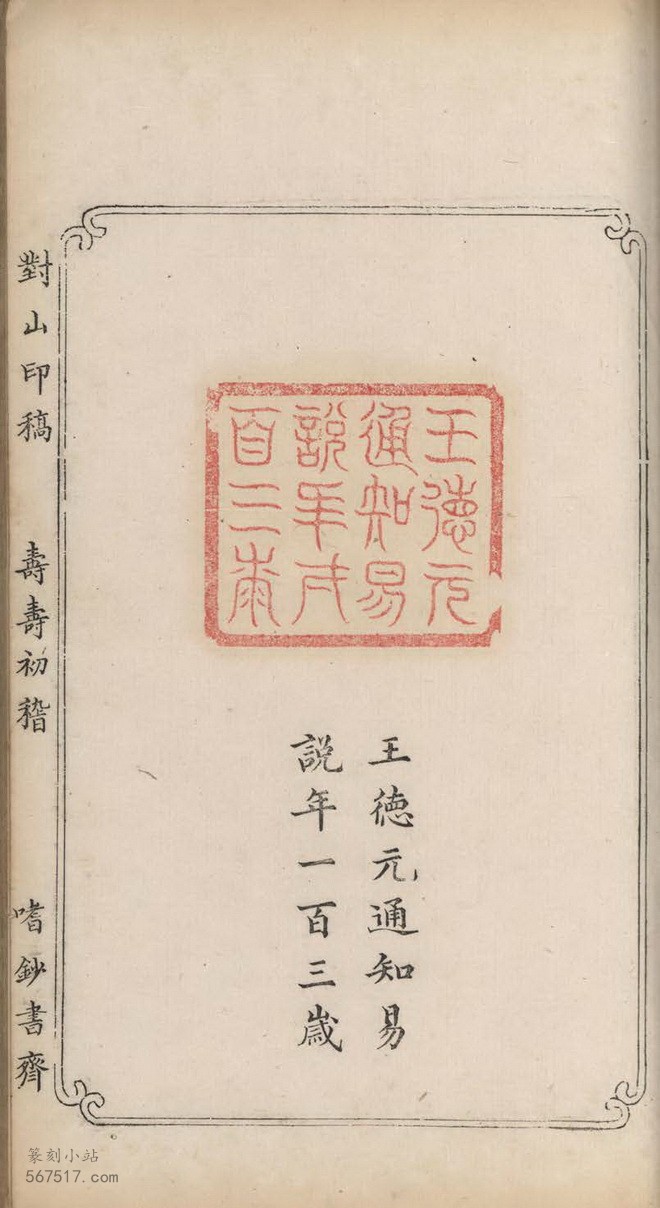 王德元
通知易
說年弌
百三歲
王德元通知易
說年一百三歲
對山印稿 壽壽初稽 嗜鈔書齊
篆刻小站
567517.com